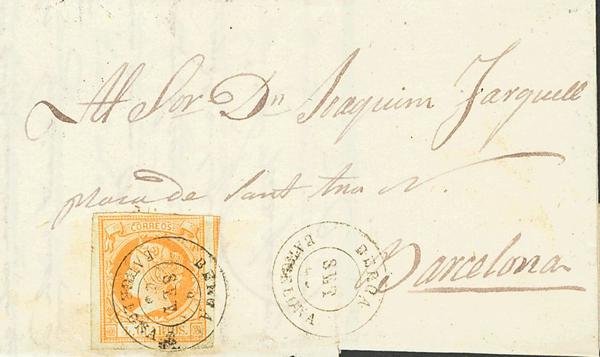 Al Sor Dn Joaquim Farguell
plasa de Sant Ana N.
Barcelona
CORREOS
BERGA
BARCELONA
SET
BERGA
BARCELONA
SET